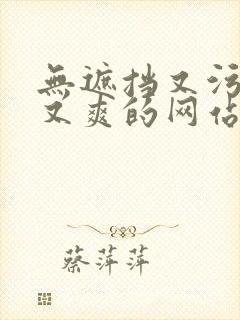 無遮挡又污
又爽的网佔
蔡萍萍